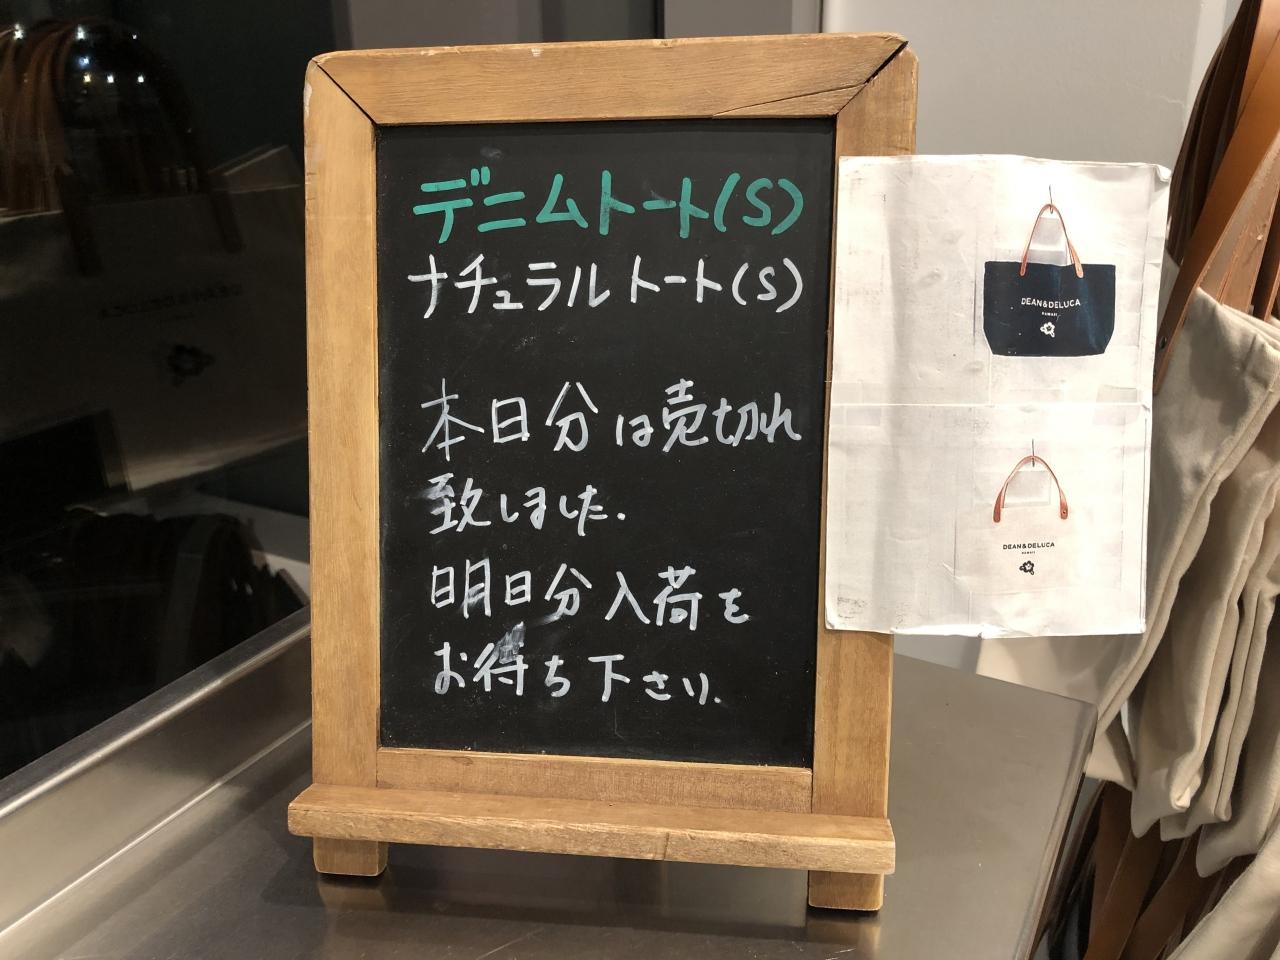 デニムトート(S)
ナチュラルトート(S)
本日分は売切れ
致しました.
明日分入荷を
お待ち下さい.
DEAN&DELUCA
HAWAII
DEAN&DELUCA
HAWAII